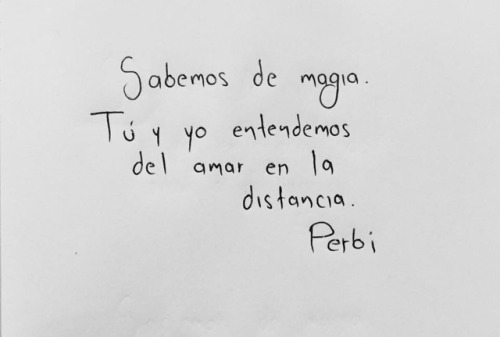 Sabemos de magia.
Tú y yo entendemos
del amar en la
distancia.
Perbi